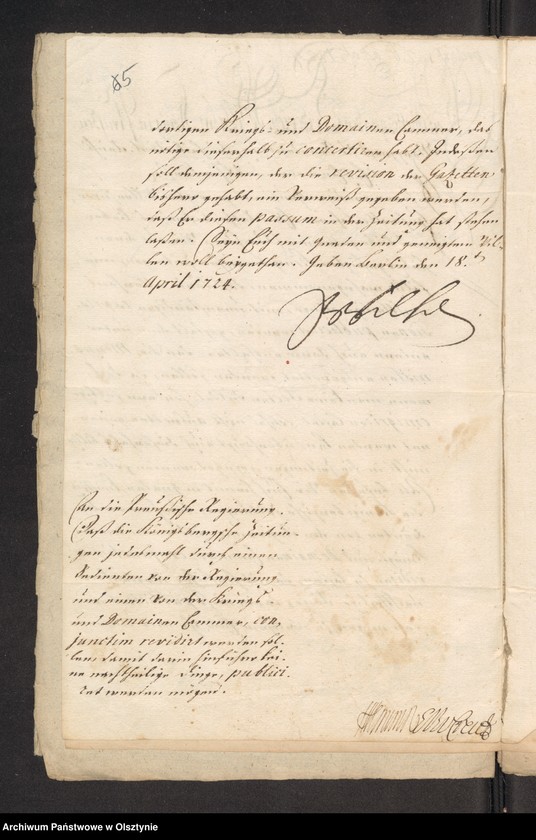 85
dortigen Kriegs- und Domainen Cammer, das
nötige dieserhalb zu concertiren habt. Indeßen
soll demjenigen, der die revision der Gazetten
bißher gehabt, ein Verweiß gegeben werden,
daß Er diesen passum in der Zeitung hat stehen
laßen. Seynd Euch mit Gnaden und geneigtem Wil-
len woll beygethan. Geben Berlin den 18.t
April 1724.
An die Preußische Regierung.
Daß die Königsbergsche Zeitun-
gen jedesmahl durch einen
Bedienten von der Regierung
und einen von der Kriegs
und Domainen Cammer, con-
junctim revidirt werden sol-
len, damit darin hinführo kei-
ne nachtheilige Dinge, publici-
ret werden mögen.
Archiwum Państwowe w Olsztynie